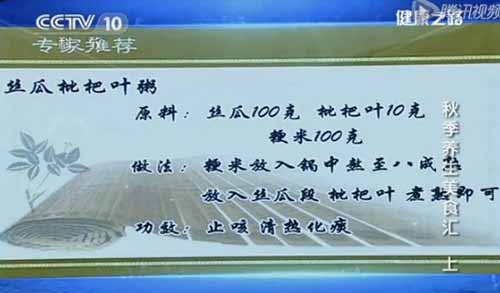 CCTV 10
健康之路
腾讯视频
专家推荐
丝瓜枇杷叶粥
原料：丝瓜100克 枇杷叶10克
粳米100克
做法：粳米放入锅中熬至八成熟
放入丝瓜段 枇杷叶 煮熟即可
功效：止咳 清热化痰
秋季养生美食汇 上